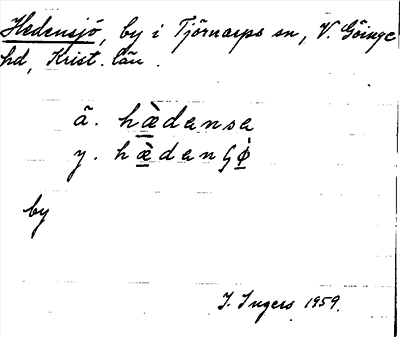 Hedensjö, by i Tjörnarps sn, V. Göinge
hd, Krist. län.
ä. hæ̀densa
y. hæ̀denʂø̀
by
I. Ingers 1959.